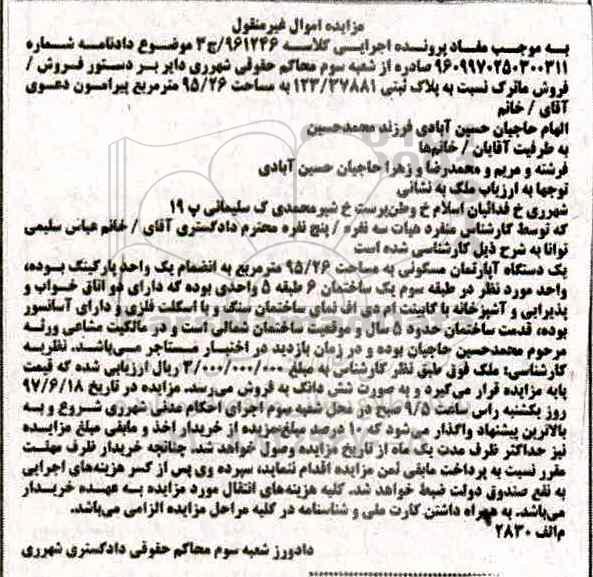 مزایده اموال غیرمنقول
به موجب مفاد پرونده اجرایی کلاسه ۹۶۱۲۴۶/ج۳ موضوع دادنامه شماره
۹۶۰۹۹۷۰۲۵۰۳۰۰۳۱۱ صادره از شعبه سوم محاکم حقوقی شهرری دایر بر دستور فروش /
فروش ماترک نسبت به پلاک ثبتی ۱۲۳/۳۷۸۸۱ به مساحت ۹۵/۲۶ مترمربع پیرامون دعوی
آقای / خانم
الهام حاجیان حسین آبادی فرزند محمدحسین
به طرفیت آقایان / خانم‌ها
فرشته و مریم و محمدرضا و زهرا حاجیان حسین آبادی
توجها به ارزیاب ملک به نشانی
شهرری خ فدائیان اسلام خ وطن‌پرست خ شیرمحمدی ک سلیمانی پ ۱۹
که توسط کارشناس منفرد هیات سه نفره / پنج نفره محترم دادگستری آقای / خانم عباس سلیمی
توانا به شرح ذیل کارشناسی شده است
یک دستگاه آپارتمان مسکونی به مساحت ۹۵/۲۶ مترمربع به انضمام یک واحد پارکینگ بوده،
واحد مورد نظر در طبقه سوم یک ساختمان ۶ طبقه ۵ واحدی بوده که دارای دو اتاق خواب و
پذیرایی و آشپزخانه با کابینت ام دی اف نمای ساختمان سنگ و با اسکلت فلزی و دارای آسانسور
بوده، قدمت ساختمان حدود ۵ سال و موقعیت ساختمان شمالی است و در مالکیت مشاعی ورثه
مرحوم محمدحسین حاجیان بوده و در زمان بازدید در اختیار مستاجر می‌باشد. نظریه
کارشناسی: ملک فوق طبق نظر کارشناس به مبلغ ۳/۰۰۰/۰۰۰/۰۰۰ ریال ارزیابی شده که قیمت
پایه مزایده قرار می‌گیرد و به صورت شش دانگ به فروش می‌رسد. مزایده در تاریخ ۹۷/۶/۱۸
روز یکشنبه راس ساعت ۹/۵ صبح در محل شعبه سوم اجرای احکام مدنی شهرری شروع و به
بالاترین پیشنهاد واگذار می‌شود که ۱۰ درصد مبلغ مزیده از خریدار اخذ و مابقی مبلغ مزایده
نیز حداکثر ظرف مدت یک ماه از تاریخ مزایده وصول خواهد شد. چنانچه خریدار ظرف مهلت
مقرر نسبت به پرداخت مابقی ثمن مزایده اقدام ننماید، سپرده وی پس از کسر هزینه‌های اجرایی
به نفع صندوق دولت ضبط خواهد شد. کلیه هزینه‌های انتقال مورد مزایده به عهده خریدار
می‌باشد. به همراه داشتن کارت ملی و شناسنامه در کلیه مراحل مزایده الزامی می‌باشد.
م‌الف ۲۸۳۰
دادورز شعبه سوم محاکم حقوقی دادگستری شهرری